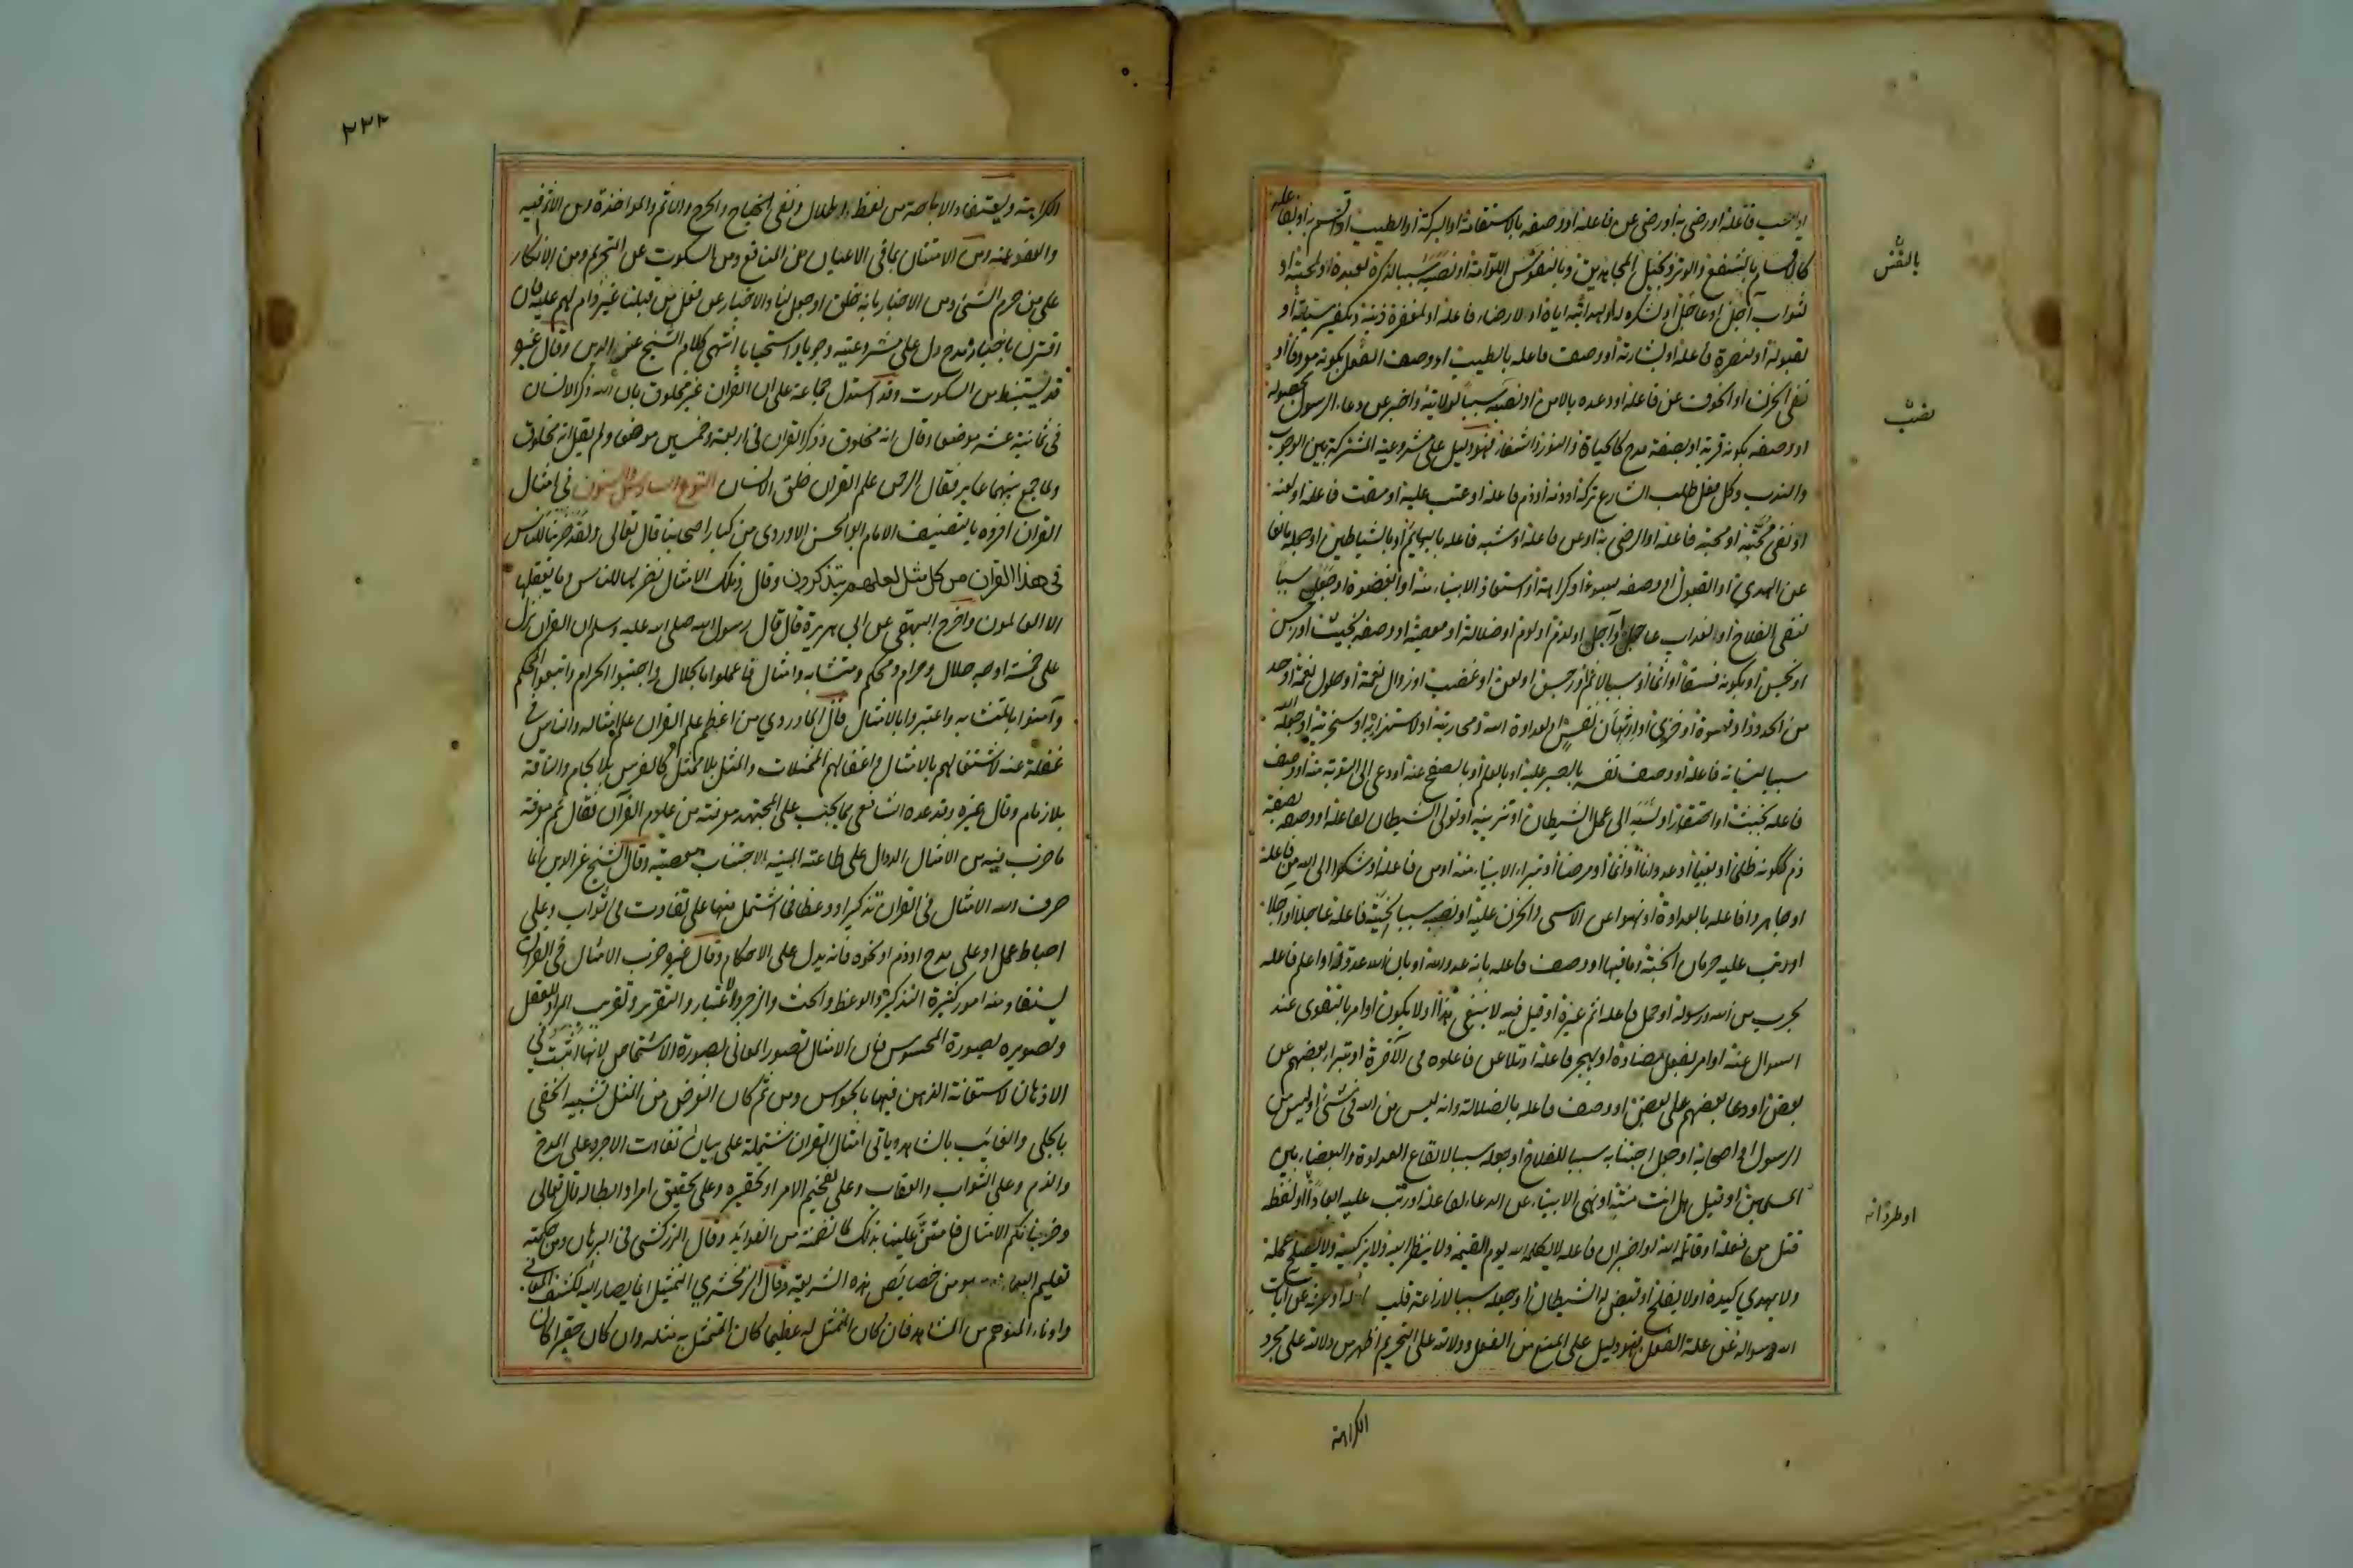 او احب فاعله او رضى به او رضى عن فاعله او وصفه بالاستقامة او البركة او الطيب او اقسم به او بفاعله
كالاقسام بالشفع والوتر وبخيل المجاهدين وبالنفوس اللوامة او نصبه سببا لذكره لعبده او لمحبته او
بالنفس
لثواب آجل او عاجل او لشكره له او لهدايته اياه او لارضاء فاعله او لمغفرة ذنبه وتكفير سيئاته او
لقبوله او لنصرة فاعله او بشارته او وصف فاعله بالطيب او وصف الفعل بكونه معروفا او
نفى الحزن او الخوف عن فاعله او وعده بالامن او نصبه سببا لولايته او اخبر عن دعاء الرسول بحصوله
نصب
او وصفه بكونه قربة او بصفة مدح كالحياة والنور والشفاء فهو دليل على مشروعيته المشتركة بين الوجوب
والندب وكل فعل طلب الشارع تركه او ذمه او ذم فاعله او عتب عليه او مقت فاعله او لعنه
او نفى محبته او محبة فاعله او الرضى به او عن فاعله او شبه فاعله بالبهائم او بالشياطين او جعله مانعا
عن الهدى او القبول او وصفه بسوء او كراهة او استعاذ الانبياء منه او ابغضوه او جعل سببا
لنفى الفلاح او لعذاب عاجل او آجل او لذم او لوم او ضلالة او معصية او وصفه بخبيث او رجس
او نجس او بكونه فسقا او اثما او سببا لاثم او رجس او لعن او غضب او زوال نعمة او حلول نقمة او حد
من الحدود او قسوة او خزى او ارتهان نفس او لعداوة الله ومحاربته او لاستهزائه او سخريته او جعله الله
سببا لنسيانه فاعله او وصف نفسه بالصبر عليه او بالحلم او بالصفح عنه او دعى الى التوبة منه او وصف
فاعله بخبث او احتقار او نسبه الى عمل الشيطان او تزيينه او تولى الشيطان لفاعله او وصفه بصفة
ذم ككونه ظلما او بغيا او عدوانا او اثما او مرضا او تبراء الانبياء منه او من فاعله او شكوا الى الله من فاعله
او جاهروا فاعله بالعداوة او نهوا عن الاسى والحزن عليه او نصب سببا لخيبة فاعله عاجلا او آجلا
او رتب عليه حرمان الجنة وما فيها او وصف فاعله بانه عدو الله او بان الله عدوه او اعلم فاعله
بحرب من الله ورسوله او حمل فاعله اثم غيره او قيل فيه لا ينبغى هذا او لا يكون او امر بالتقوى عند
السوال عنه او امر بفعل مضاده او بهجر فاعله او تلاعن فاعلوه فى الآخرة او تبراء بعضهم عن
بعض او دعا بعضهم على بعض او وصف فاعله بالضلالة وانه ليس من الله فى شئ او ليس من
الرسول او اصحابه او جعل اجتنابه سببا للفلاح او جعله سببا لايقاع العداوة والبغضاء بين
المسلمين او قيل هل انت منته او نهى الانبياء عن الدعاء لفاعله او رتب عليه ابعادا او لفظة
او طردا انه
قتل من فعله او قاتله الله او اخبر ان فاعله لا يكلمه الله يوم القيمة ولا ينظر اليه ولا يزكيه ولا يصلح عمله
ولا يهدي كيده او لا يفلح او تقيض له الشيطان او جعله سببا لازاغة قلب او صرفه عن آيات
الله وسواله عن علة الفعل فهو دليل على المنع من الفعل ودلالته على التحريم اظهر من دلالته على مجرد
الكراهة
٢٣٢
الكراهة ويستفاد الاباحة من لفظ الاحلال ونفى الجناح والحرج والاثم والمواخذة ومن الاذن فيه
والعفو عنه ومن الامتنان بما فى الاعيان من المنافع ومن السكوت عن التحريم ومن الانكار
على من حرم الشئ ومن الاخبار بانه خلق او جعل لنا والاخبار عن فعل من قبلنا غير ذام لهم عليه فان
اقترن باخباره مدح دل على مشروعيته وجوبا او استحبابا انتهى كلام الشيخ عز الدين وقال غيره
قد يستنبط من السكوت وقد استدل جماعة على ان القرآن غير مخلوق بان الله ذكر الانسان
فى ثمانية عشر موضعا وقال انه مخلوق وذكر القرآن فى اربعة وخمسين موضعا ولم يقل انه مخلوق
ولما جمع بينهما غاير فقال الرحمن علم القرآن خلق الانسان النوع السادس والستون فى امثال
القرآن افرده بالتصنيف الامام ابو الحسن الماوردى من كبار اصحابنا قال تعالى ولقد ضربنا للناس
فى هذا القرآن من كل مثل لعلهم يتذكرون وقال وتلك الامثال نضربها للناس وما يعقلها
الا العالمون واخرج البيهقى عن ابى هريرة قال قال رسول الله صلى الله عليه وسلم ان القرآن نزل
على خمسة اوجه حلال وحرام ومحكم ومتشابه وامثال فاعملوا بالحلال واجتنبوا الحرام واتبعوا المحكم
وآمنوا بالمتشابه واعتبروا بالامثال قال الماوردي من اعظم علم القرآن علم امثاله والناس فى
غفلة عنه لاشتغالهم بالامثال واغفالهم الممثلات والمثل بلا ممثل كالفرس بلا لجام والناقة
بلا زمام وقال غيره وقد عده الشافعى مما يجب على المجتهد معرفته من علوم القرآن فقال ثم معرفة
ما ضرب فيه من الامثال الدوال على طاعته المبينة لاجتناب معصيته وقال الشيخ عز الدين انما
ضرب الله الامثال فى القرآن تذكيرا ووعظا فما اشتمل منها على تفاوت فى ثواب وعلى
احباط عمل او على مدح او ذم او نحوه فانه يدل على الاحكام وقال غيره ضرب الامثال فى القرآن
يستفاد منه امور كثيرة التذكير والوعظ والحث والزجر والاعتبار والتقرير وتقريب المراد للعقل
وتصويره بصورة المحسوس فان الامثال تصور المعانى بصورة الاشخاص لانها اثبت فى
الاذهان لاستعانة الذهن فيها بالحواس ومن ثم كان الغرض من المثل تشبيه الخفى
بالجلى والغائب بالشاهد وياتى امثال القرآن مشتملة على بيان تفاوت الاجر وعلى المدح
والذم وعلى الثواب والعقاب وعلى تفخيم الامر او تحقيره وعلى تحقيق امر او ابطاله قال تعالى
وضربنا لكم الامثال فامتن علينا بذلك لما تضمنه من الفوائد وقال الزركشى فى البرهان ومن حكمته
تعليم البيان وهو من خصائص هذه الشريعة وقال الزمخشري التمثيل انما يصار اليه لكشف المعانى
وادناء المتوهم من المشاهد فان كان المتمثل له عظيما كان المتمثل به مثله وان كان حقيرا كان